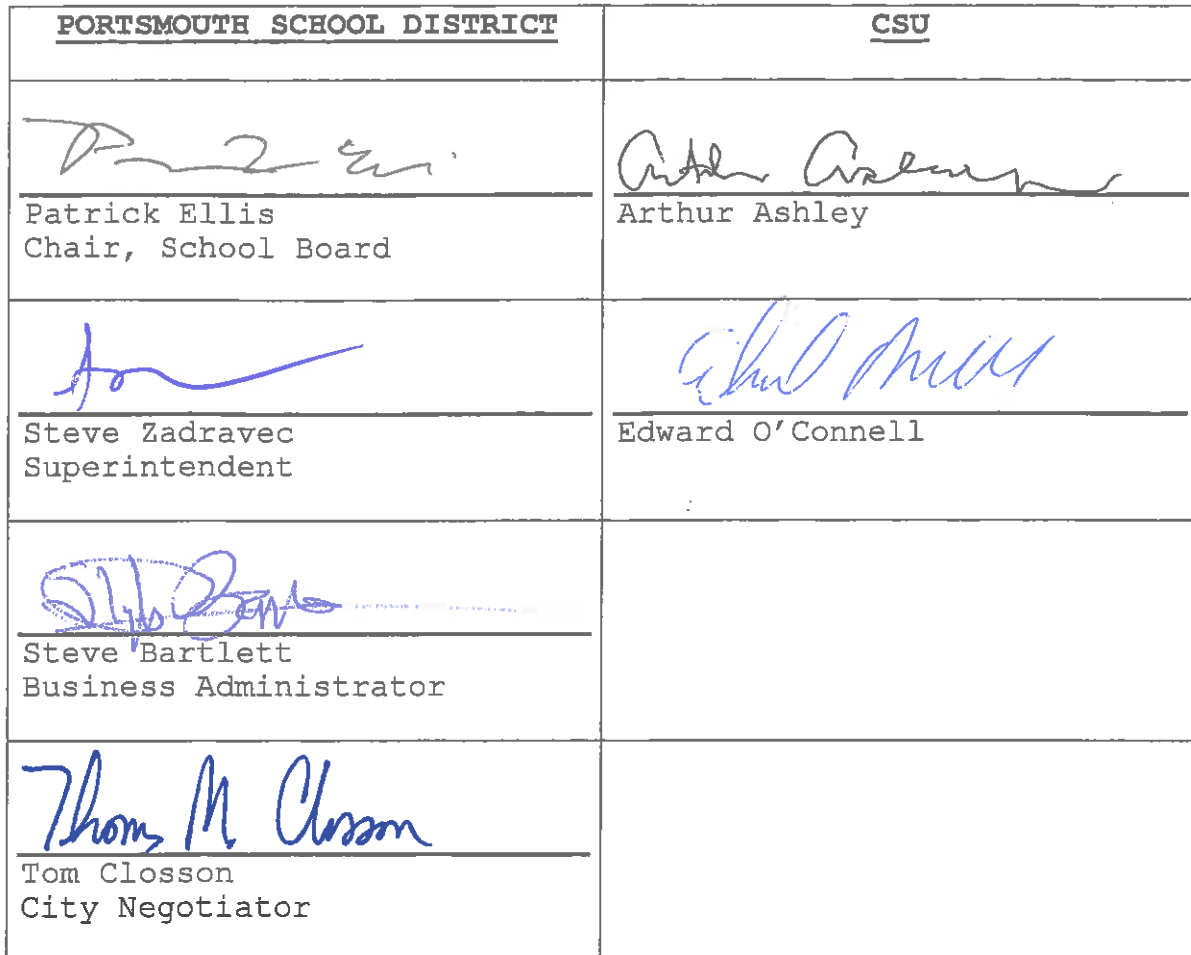 PORTSMOUTH SCHOOL DISTRICT
CSU
Patrick Ellis
Chair, School Board
Arthur Ashley
Steve Zadravec
Superintendent
Edward O'Connell
Steve Bartlett
Business Administrator
Thomas M Closson
Tom Closson
City Negotiator